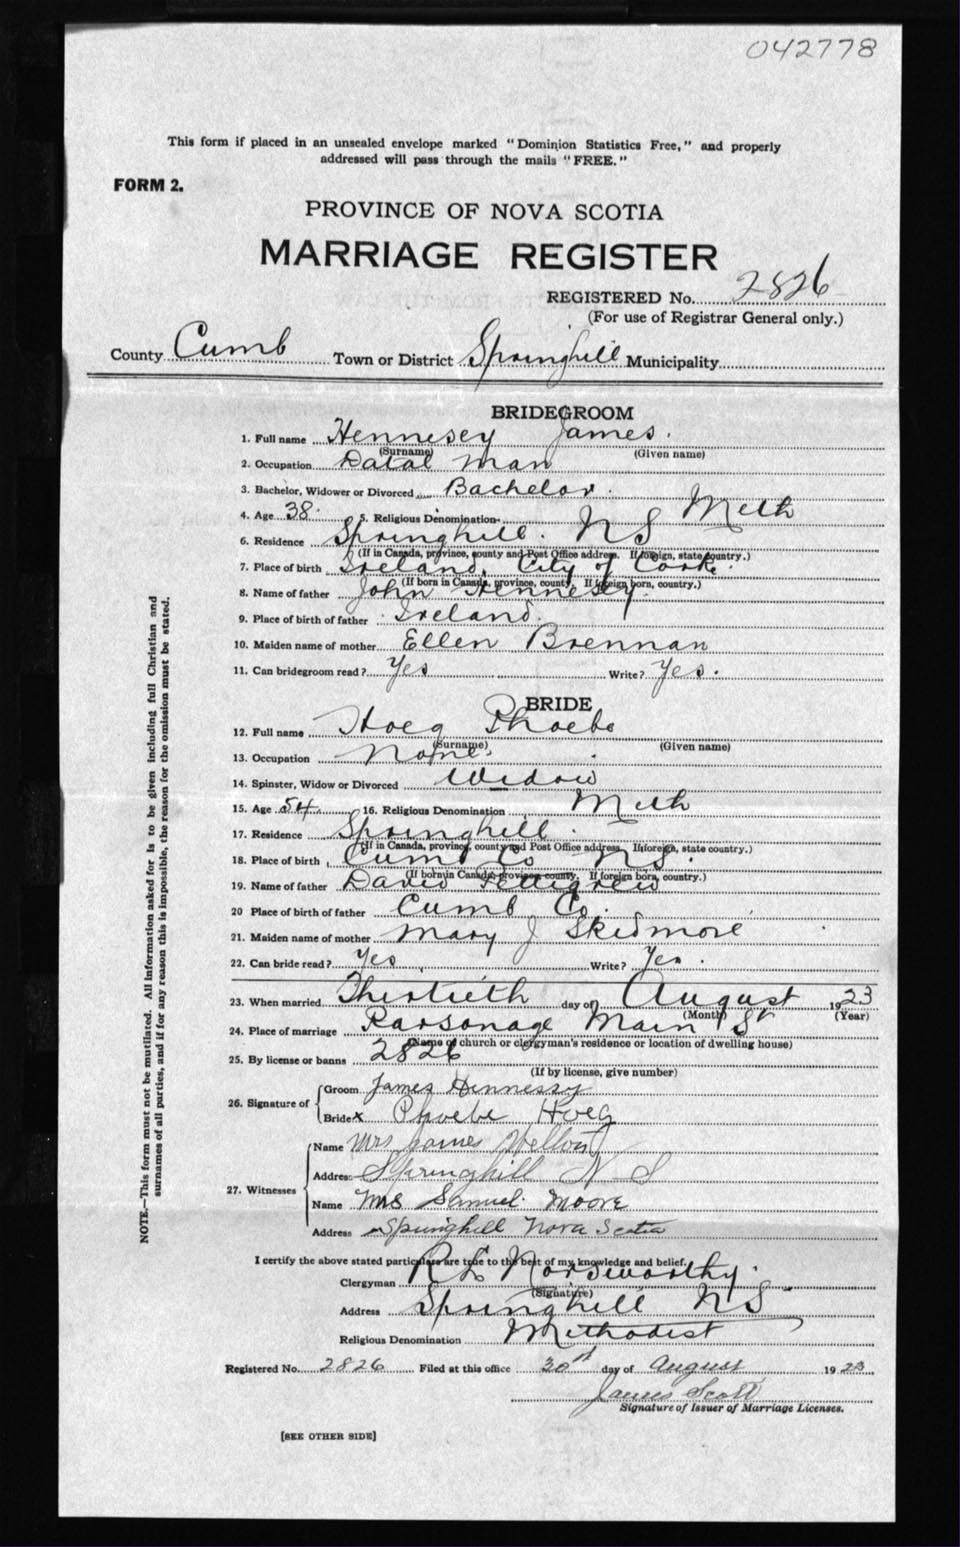 042778
This form if placed in an unsealed envelope marked "Dominion Statistics Free," and properly
addressed will pass through the mails "FREE."
FORM 2.
PROVINCE OF NOVA SCOTIA
MARRIAGE REGISTER
REGISTERED No. 2826
(For use of Registrar General only.)
County Cumb Town or District Springhill Municipality
BRIDEGROOM
1. Full name Hennesey James.
(Surname) (Given name)
2. Occupation Datal man
3. Bachelor, Widower or Divorced Bachelor.
4. Age 38. 5. Religious Denomination Meth
6. Residence Springhill. NS
(If in Canada, province, county and Post Office address. If foreign, state country.)
7. Place of birth Ireland. City of Corke.
(If born in Canada, province, county. If foreign born, country.)
8. Name of father John Hennesey.
9. Place of birth of father Ireland.
10. Maiden name of mother Ellen Brennan
11. Can bridegroom read? Yes Write? Yes.
BRIDE
12. Full name Hoeg Phoebe
(Surname) (Given name)
13. Occupation None.
14. Spinster, Widow or Divorced Widow
15. Age 54. 16. Religious Denomination Meth
17. Residence Springhill.
(If in Canada, province, county and Post Office address. If foreign, state country.)
18. Place of birth Cumb Co NS.
(If born in Canada, province, county. If foreign born, country.)
19. Name of father David Pettigrew
20 Place of birth of father Cumb Co.
21. Maiden name of mother Mary J Skidmore
22. Can bride read? Yes Write? Yes.
23. When married Thirtieth day of August 1923
(Month) (Year)
24. Place of marriage Parsonage Main St
(Name of church or clergyman's residence or location of dwelling house)
25. By license or banns 2826
(If by license, give number)
26. Signature of Groom James Hennessy
Bride X Phoebe Hoeg
27. Witnesses Name Mrs James
Address Springhill N S
Name Mrs Samuel Moore
Address Springhill Nova Scotia
I certify the above stated particulars are true to the best of my knowledge and belief.
Clergyman R L Norsworthy.
(Signature)
Address Springhill NS
Religious Denomination Methodist
Registered No. 2826 Filed at this office 30st day of August 1923
James Scott
Signature of Issuer of Marriage Licenses.
[SEE OTHER SIDE]
NOTE.—This form must not be mutilated. All information asked for is to be given including full Christian and
surnames of all parties, and if for any reason this is impossible, the reason for the omission must be stated.